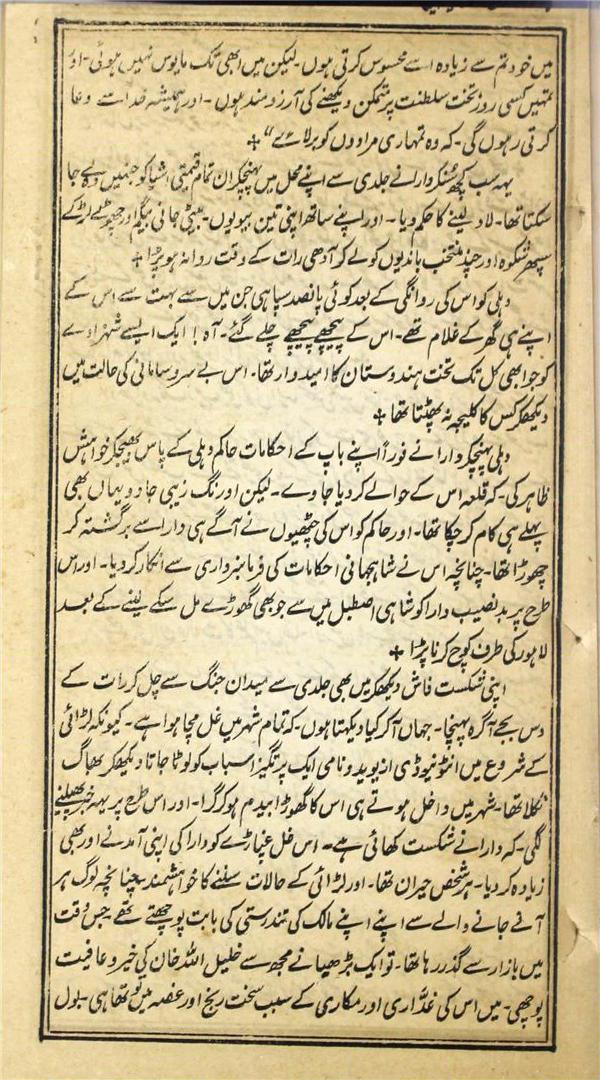 میں خود تم سے زیادہ اسے محسوس کرتی ہوں۔ لیکن میں ابھی تک مایوس نہیں ہوئی۔ اور
تمہیں کسی روز تخت سلطنت پر متمکن دیکھنے کی آرزومند ہوں۔ اور ہمیشہ خدا سے دعا
کرتی رہوں گی۔ کہ وہ تمہاری مرادوں کو برلائے“ +
یہہ سب کچھ سنکر دارا نے جلدی سے اپنے محل میں پہنچکر ان تمام قیمتی اشیا کو جنہیں وہ لے جا
سکتا تھا۔ لاد لینے کا حکم دیا۔ اور اپنے ساتھ اپنی تین بیویوں۔ بیٹی جانی بیگم اور چھوٹے لڑکے
سپہر شکوہ اور چند منتخب باندیوں کو لے کر آدھی رات کے وقت روانہ ہو پڑا +
دہلی کو اس کی روانگی کے بعد کوئی پانصد سپاہی جن میں سے بہت سے اس کے
اپنے ہی گھر کے غلام تھے۔ اس کے پیچھے پیچھے چلے گئے۔ آہ! ایک ایسے شہزادے
کو جو ابھی کل تک تخت ہندوستان کا امیدوار تھا۔ اس بے سروسامانی کی حالت میں
دیکھکر کس کا کلیجہ نہ پھٹتا تھا +
دہلی پہنچکر دارا نے فوراً اپنے باپ کے احکامات حاکم دہلی کے پاس بھیجکر خواہش
ظاہر کی۔ کہ قلعہ اس کے حوالے کر دیا جاوے۔ لیکن اورنگ زیبی جادو یہاں بھی
پہلے ہی کام کر چکا تھا۔ اور حاکم کو اس کی چٹھیوں نے آگے ہی دارا سے برگشتہ کر
چھوڑا تھا۔ چنانچہ اس نے شاہجہانی احکامات کی فرمانبرداری سے انکار کر دیا۔ اور اس
طرح پر بدنصیب دارا کو شاہی اصطبل میں سے جو بھی گھوڑے مل سکے لینے کے بعد
لاہور کی طرف کوچ کرنا پڑا +
اپنی شکست فاش دیکھکر میں بھی جلدی سے میدان جنگ سے چل کر رات کے
دس بجے آگرہ پہنچا۔ جہاں آکر کیا دیکھتا ہوں۔ کہ تمام شہر میں غل مچا ہوا ہے۔ کیونکہ لڑائی
کے شروع میں انٹونیو ڈی ازیویدو نامی ایک پرتگیز اسباب کو لوٹا جاتا دیکھکر بھاگ
نکلا تھا۔ شہر میں داخل ہوتے ہی اس کا گھوڑا بیدم ہو کر گرا۔ اور اس طرح پر یہہ خبر پھیلنے
لگی۔ کہ دارا نے شکست کھائی ہے۔ اس غل غپاڑے کو دارا کی اپنی آمد نے اور بھی
زیادہ کر دیا۔ ہر شخص حیران تھا۔ اور لڑائی کے حالات سننے کا خواہشمند۔ چنانچہ لوگ ہر
آنے جانے والے سے اپنے اپنے مالک کی تندرستی کی بابت پوچھتے تھے۔ جس وقت
میں بازار سے گذر رہا تھا۔ تو ایک بڑھیا نے مجھ سے خلیل اللہ خان کی خیر و عافیت
پوچھی۔ میں اس کی غداری اور مکاری کے سبب سخت رنج اور غصہ میں تو تھا ہی۔ بول